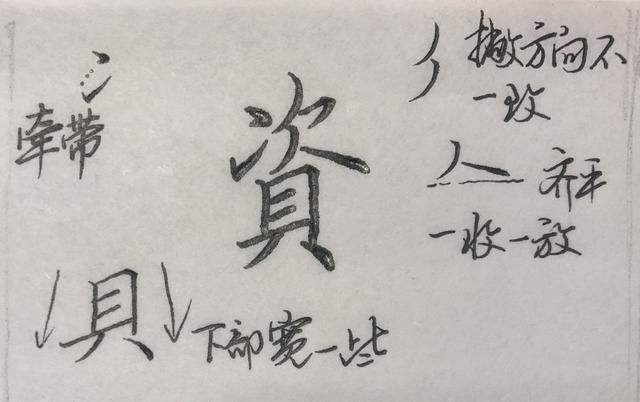 牵带
資
撇方向不
一致
齐平
一收一放
貝
下部宽一些